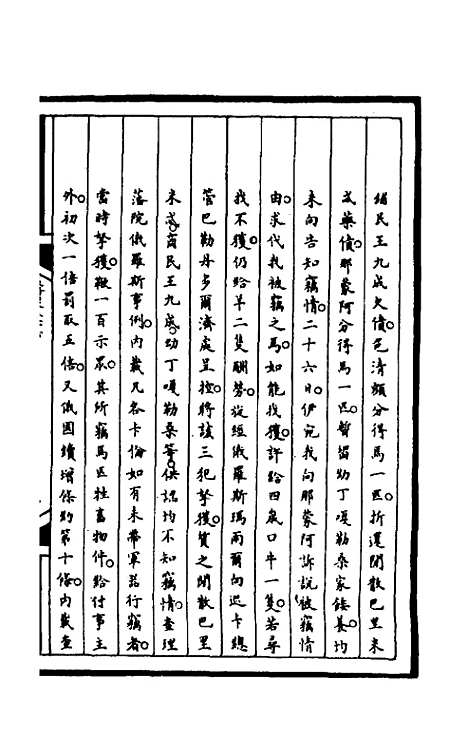 绌民王九成欠債。色清額分得馬一匹。折還閒散巴里米
忒藥債。那蒙阿分得馬一匹。暫留幼丁嘎勒桑家餧養。均
未向告知竊情。二十六日。伊宛我向那蒙阿訴說被竊情
由。求代我被竊之馬。如能找獲。許給四歲口牛一隻。若尋
找不獲。仍給羊二隻酬勞。旋經俄羅斯瑪雨爾向迟卡總
管巴勒丹多爾濟處呈控。將該三犯拏獲。質之閒散巴里
米忒。商民王九成。幼丁嘎勒桑等。供認均不知竊情。查理
藩院俄羅斯事例。內載凡各卡倫如有未帶軍器行竊者。
當時拏獲。鞭一百示眾。其所竊馬匹牲畜物件。給付事主
外。初次一倍罰取五倍。又俄國續增條約第十條。內載查